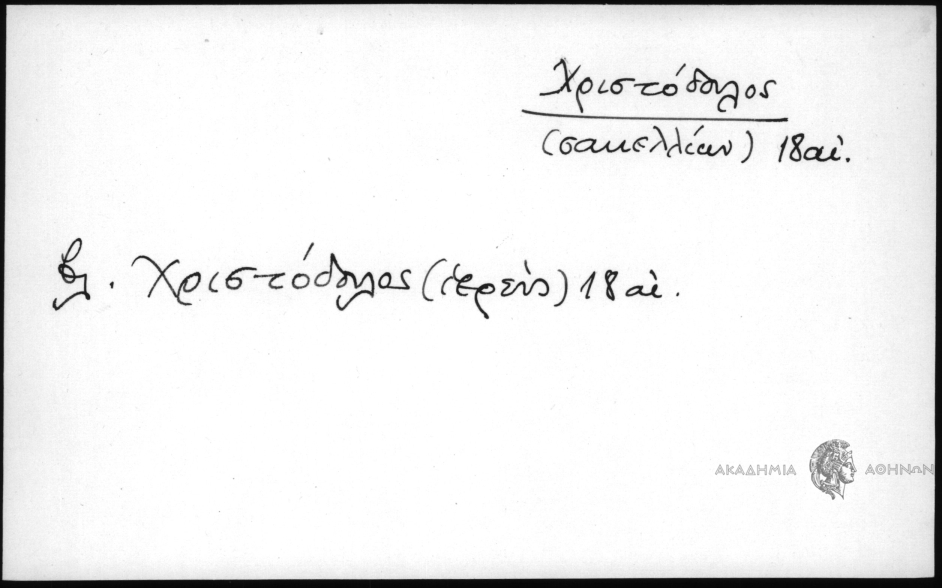 Χριστόδουλος
(σακελλίων) 18 αἰ.
βλ. Χριστόδουλος (ἱερεὺς) 18 αἰ.
ΑΚΑΔΗΜΙΑ ΑΘΗΝΩΝ